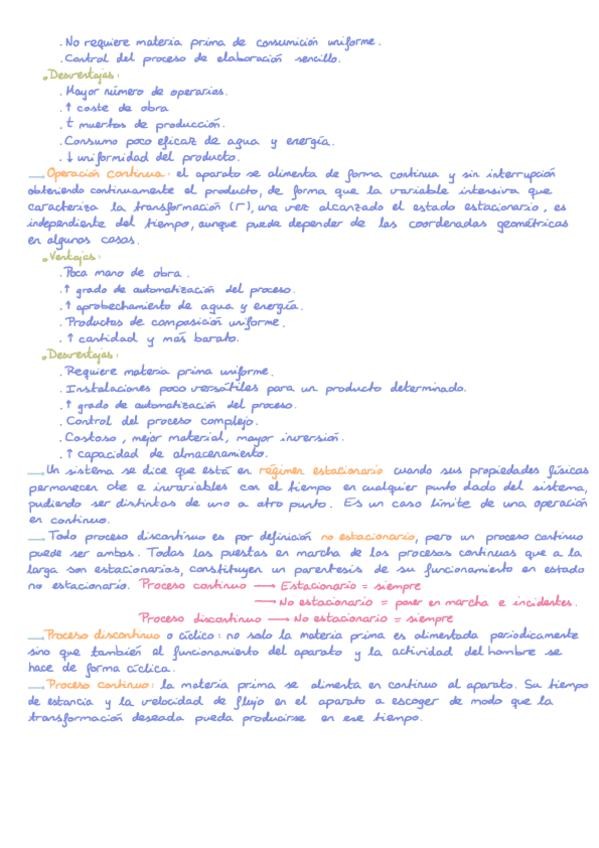 . No requiere materia prima de consumición uniforme.
. Control del proceso de elaboración sencillo.
• Desventajas:
. Mayor número de operarios.
. ↑ coste de obra
. t muertos de producción.
. Consumo poco eficaz de agua y energía.
. ↓ uniformidad del producto.
→ Operación continua: el aparato se alimenta de forma continua y sin interrupción
obteniendo continuamente el producto, de forma que la variable intensiva que
caracteriza la transformación (Γ), una vez alcanzado el estado estacionario, es
independiente del tiempo, aunque pueda depender de las coordenadas geométricas
en algunos casos.
• Ventajas:
. Poca mano de obra.
. ↑ grado de automatización del proceso.
. ↑ aprobechamiento de agua y energía.
. Productos de composición uniforme.
. ↑ cantidad y más barato.
• Desventajas:
. Requiere materia prima uniforme.
. Instalaciones poco versátiles para un producto determinado.
. ↑ grado de automatización del proceso.
. Control del proceso complejo.
. Costoso, mejor material, mayor inversión.
. ↑ capacidad de almacenamiento.
→ Un sistema se dice que está en régimen estacionario cuando sus propiedades físicas
permanecen cte e invariables con el tiempo en cualquier punto dado del sistema,
pudiendo ser distintas de uno a otro punto. Es un caso límite de una operación
en continuo.
→ Todo proceso discontinuo es por definición no estacionario, pero un proceso continuo
puede ser ambos. Todas las puestas en marcha de los procesos continuos que a la
larga son estacionarios, constituyen un parentesis de su funcionamiento en estado
no estacionario. Proceso continuo → Estacionario = siempre
→ No estacionario = poner en marcha e incidentes.
Proceso discontinuo → No estacionario = siempre
→ Proceso discontinuo o cíclico: no solo la materia prima es alimentada periodicamente
sino que también el funcionamiento del aparato y la actividad del hombre se
hace de forma cíclica.
→ Proceso continuo: la materia prima se alimenta en continuo al aparato. Su tiempo
de estancia y la velocidad de flujo en el aparato a escoger de modo que la
transformación deseada pueda producirse en ese tiempo.